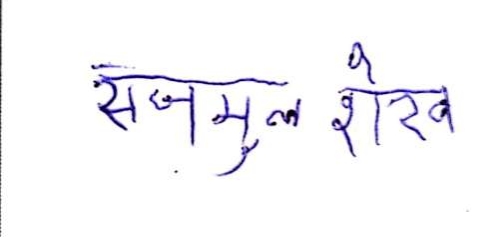 सजमुल शेख